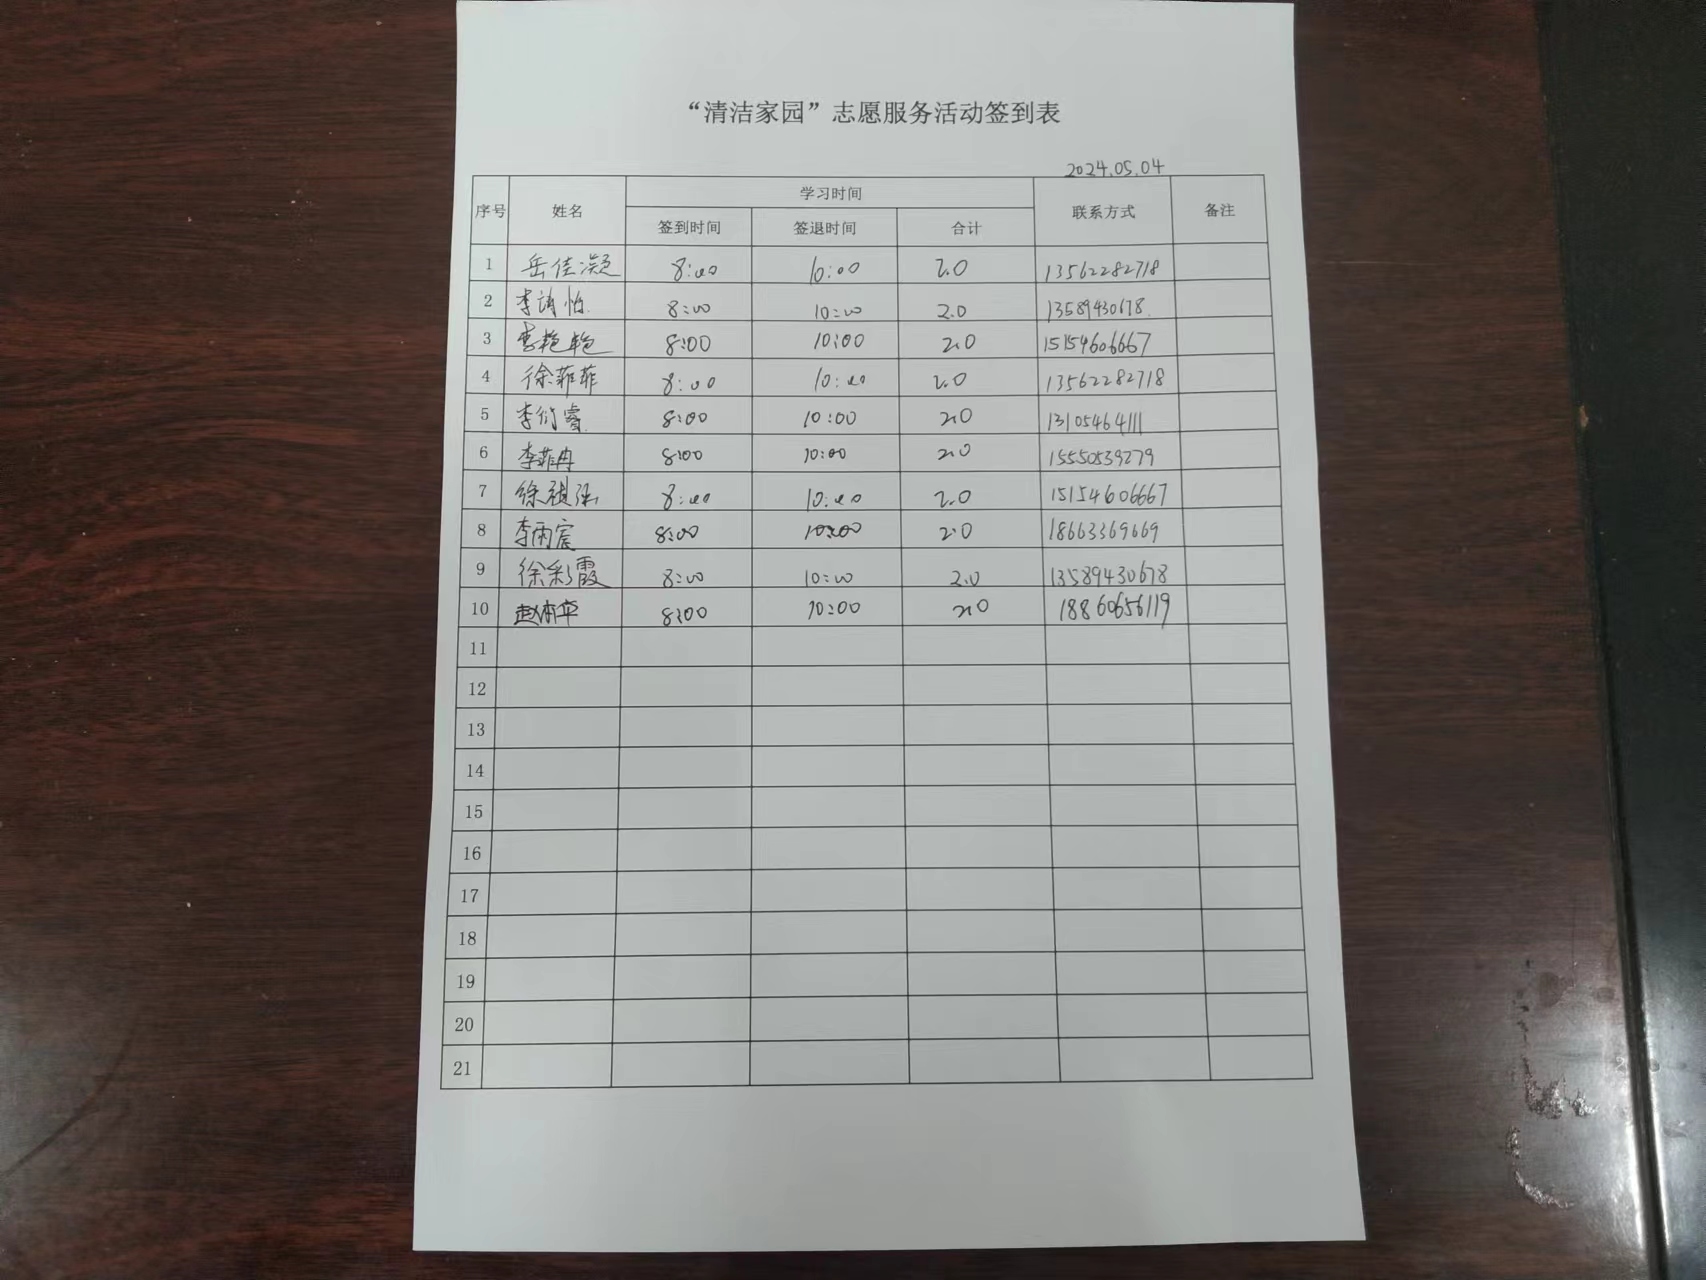 “清洁家园”志愿服务活动签到表
2024.05.04
序号 姓名 学习时间 联系方式 备注
签到时间 签退时间 合计
1 岳佳凝 8:00 10:00 2.0 13562282718
2 李诗怡 8:00 10:00 2.0 13589430678
3 李艳艳 8:00 10:00 2.0 15154606667
4 徐菲菲 8:00 10:00 2.0 13562282718
5 李衍睿 8:00 10:00 2.0 13105464111
6 李菲冉 8:00 10:00 2.0 15550539279
7 徐 8:00 10:00 2.0 15154606667
8 李雨宸 8:00 10:00 2.0 18663369669
9 徐彩霞 8:00 10:00 2.0 13589430678
10 8:00 10:00 2.0 18860656119
11
12
13
14
15
16
17
18
19
20
21